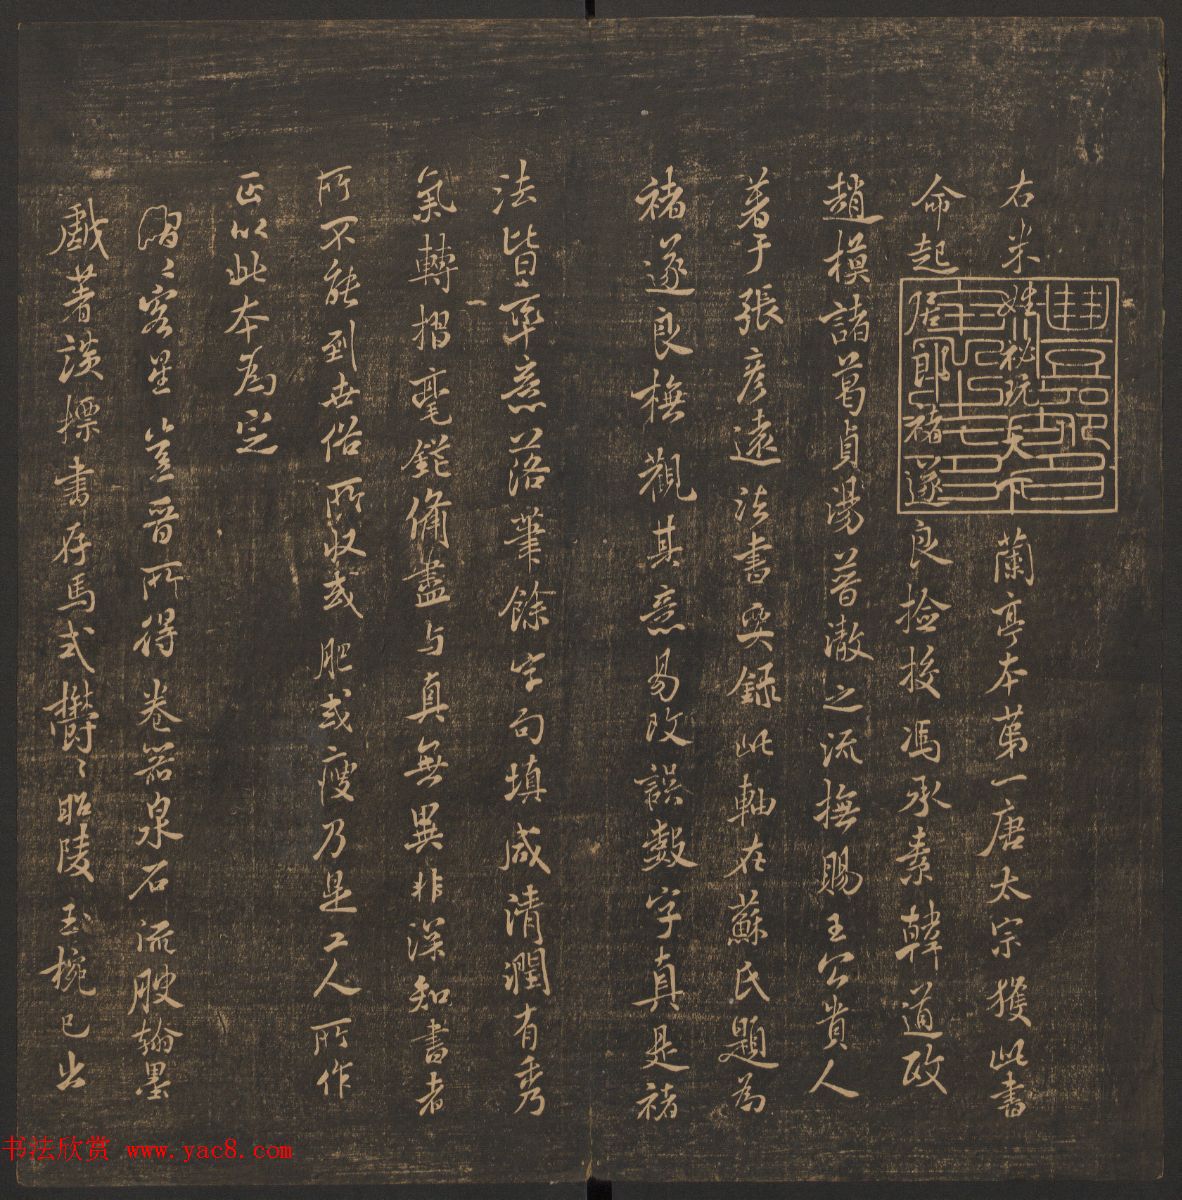 右米姓祕玩天下蘭亭本第一唐太宗獲此書
命起居郎褚遂良撿挍馮承素韓道政
趙模諸葛貞湯普澈之流撫賜王公貴人
著于張彥遠法書要録此軸在蘇氏題為
褚遂良橅觀其意易改誤數字真是褚
法皆率意落筆餘字句填咸清潤有秀
氣轉摺毫鋩俻盡与真無異非深知書者
所不能到世俗所収或肥或瘦乃是工人所作
正以此本為定
熠〻客星豈晉所得卷器泉石流腴翰墨
戲著談標書存馬式欝〻昭陵玉椀已出
书法欣赏 www.yac8.com